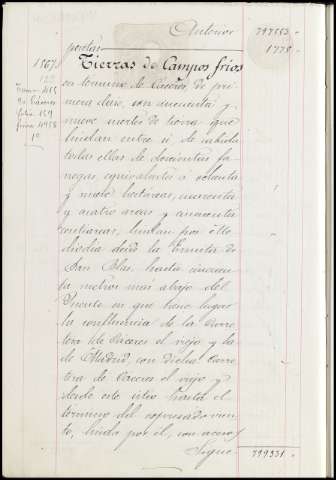 Anterior 797553
pesetas 1778
1567 Tierras de Campos fríos
en término de Cáceres, de pri-
mera clase, son cincuenta y
nueve suertes de tierra que
lindan entre si de cabida
todas ellas de doscientas fa-
negas equivalentes á ochenta
y nueve hectareas, cuarenta
y cuatro areas y cuarenta
centiareas; lindan por el Me-
diodia desde la Ermita de
San Blas, hasta cincuenta
metros mas abajo del
Puente en que tiene lugar
la confluencia de la Carre-
tera de Caceres el viejo y la
de Madrid, con dicha Carre-
tera de Caceres el viejo y
desde este sitio hasta el
termino del espresado vien-
to, linda por él, con aceras
Sigue 799331